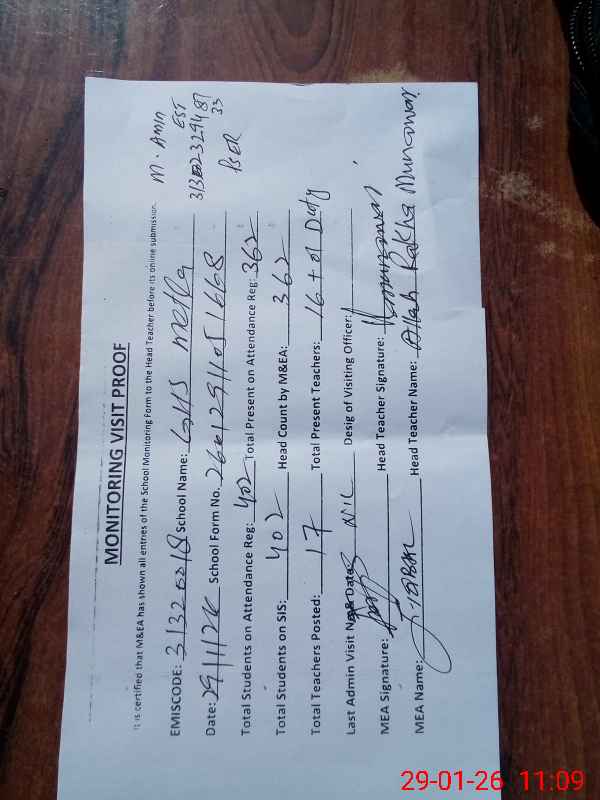 M. Amin
EST
3132329487
33
PSER
MONITORING VISIT PROOF
It is certified that M&EA has shown all entries of the School Monitoring Form to the Head Teacher before its online submission.
EMISCODE: 31320018 School Name: GHS Metla
Date: 29/1/26 School Form No. 260129110516 68
Total Students on Attendance Reg: 402 Total Present on Attendance Reg: 362
Total Students on SIS: 402 Head Count by M&EA: 362
Total Teachers Posted: 17 Total Present Teachers: 16 + 01 Duty
Last Admin Visit & Date: NIL Desig of Visiting Officer:
MEA Signature: Head Teacher Signature:
MEA Name: Head Teacher Name: Allah Rakha Munawar
29-01-26 11:09